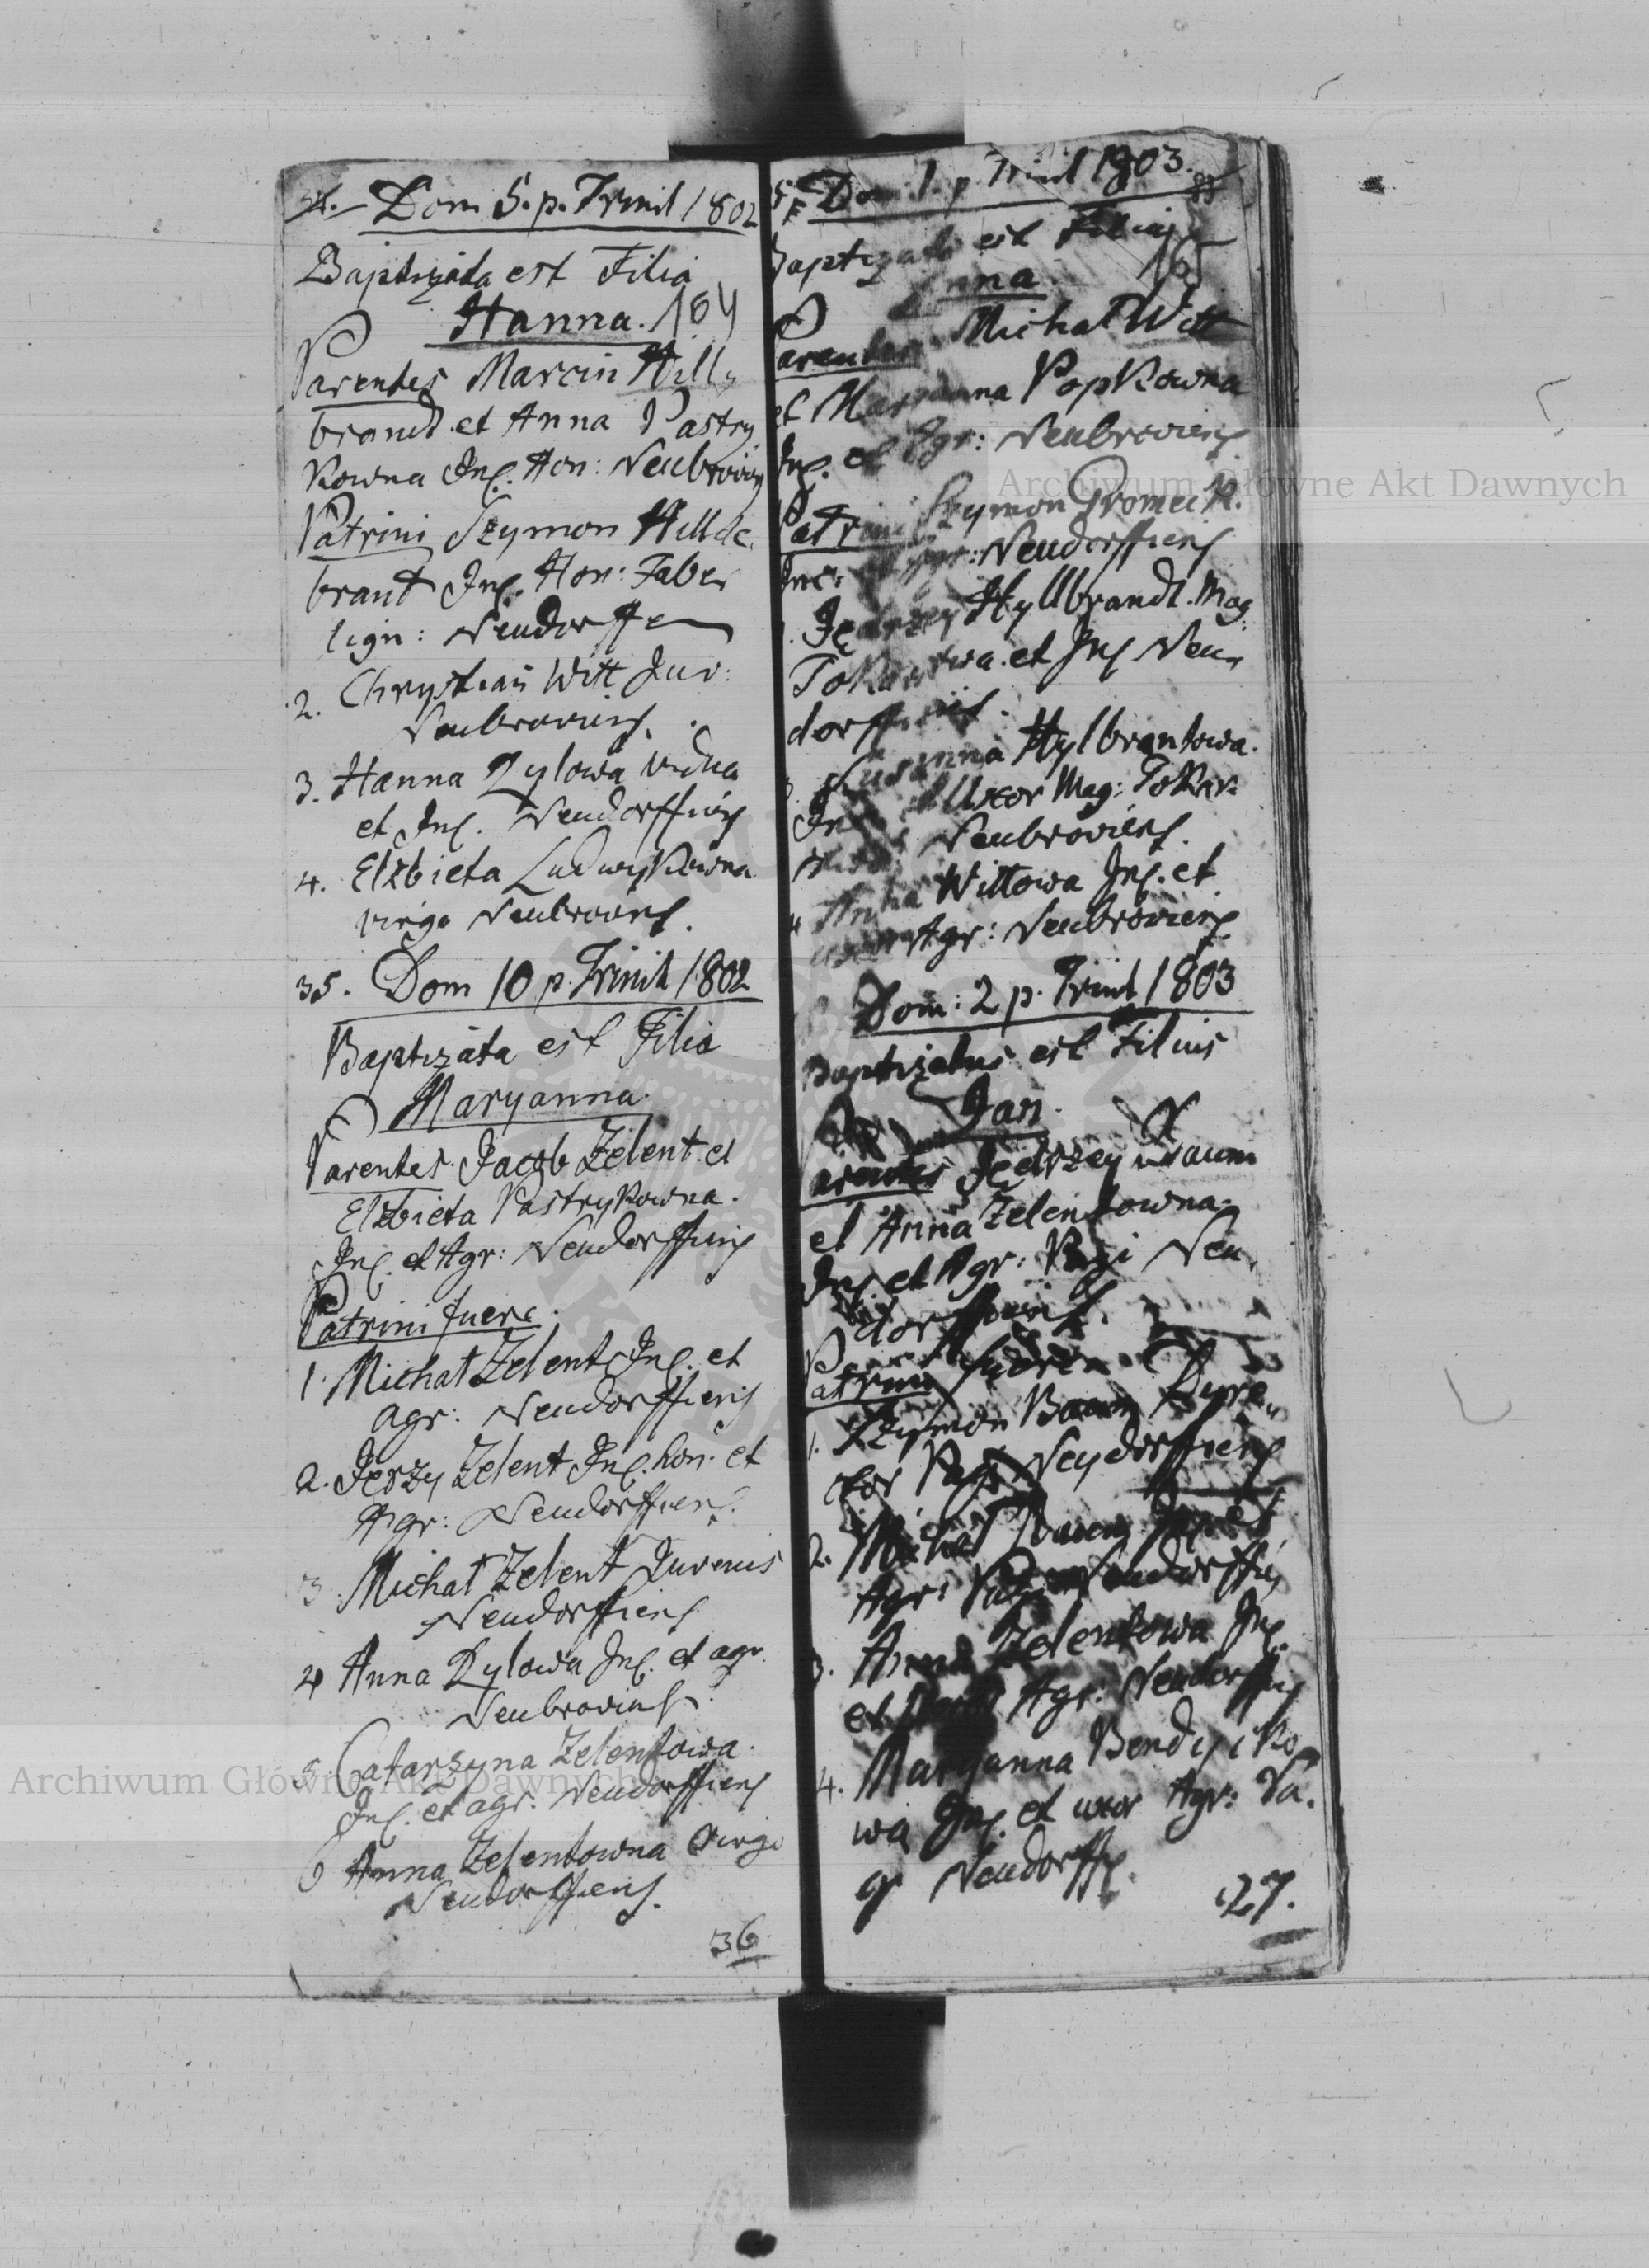 Dom 5. p. Trinit 1802
Baptizata est Filia
Hanna. 164
Parentes Marcin Hill
brand et Anna Pastry
kowna Inq. Hon: Neubrovien
Patrini Szymon Hillde
brant Inq. Hon: Faber
lign: Neudorffen
2. Chrystian Witt Juv:
Neubroviens.
3. Hanna Rylowa vidua
et Inq. Neudorffiens
4. Elżbieta Ludwykowna
virgo Neubroviens.
35. Dom 10 p. Trinit 1802
Baptizata est Filia
Maryanna.
Parentes Jacob Zelent et
Elżbieta Pastrykowna.
Inq. et Agr: Neudorffiens
Patrini fuere.
1. Michał Zelent Inq. et
agr: Neudorffiens
2. Jerzy Zelent Inq. hon. et
Agr: Neudorffiens.
3. Michał Zelent Juvenis
Neudorffiens
4 Anna Rylowa Inq. et agr.
Neubroviens.
5. Catarzyna Zelentowa.
Inq. et agr: Neudorffiens
6 Anna Zelentowna Virgo
Neudorffiens.
36
Dom: 1. p. Trinit 1803.
Baptizata est Filia
165
Anna
Parentes Michał Witt
et Maryanna Popkowna
Inq. et Agr: Neubroviens
Patrini Szymon Gromek.
Inq. Agr: Neudorffiens
Jędrzey Hyllbrandt. Mag
et Inq Neu
dorffiens.
Zuzanna Hylbrantowa.
Inq. Uxor Mag: Tokar
Neubroviens.
4 Anna Wittowa Inq. et
uxor Agr: Neubroviens
Dom: 2 p. Trinit 1803
Baptizatus est Filius
Jan.
Parentes Jędrzey Baum
et Anna Zelentowna
Inq. et Agr: Pagi Neu
dorffiens.
Patrini fuere
1. Szymon Baum Dyre
ctor Pagi Neydorffiens
2. Michał Baum Inq et
Agr: Pagi Neudorffiens
3. Anna Zelentowa Inq.
et Agr: Neudorffiens
4. Maryanna Bendyiko
wa Inq. et uxor Agr: Pa
gi Neudorffs.
27.
Archiwum Główne Akt Dawnych
Archiwum Główne Akt Dawnych